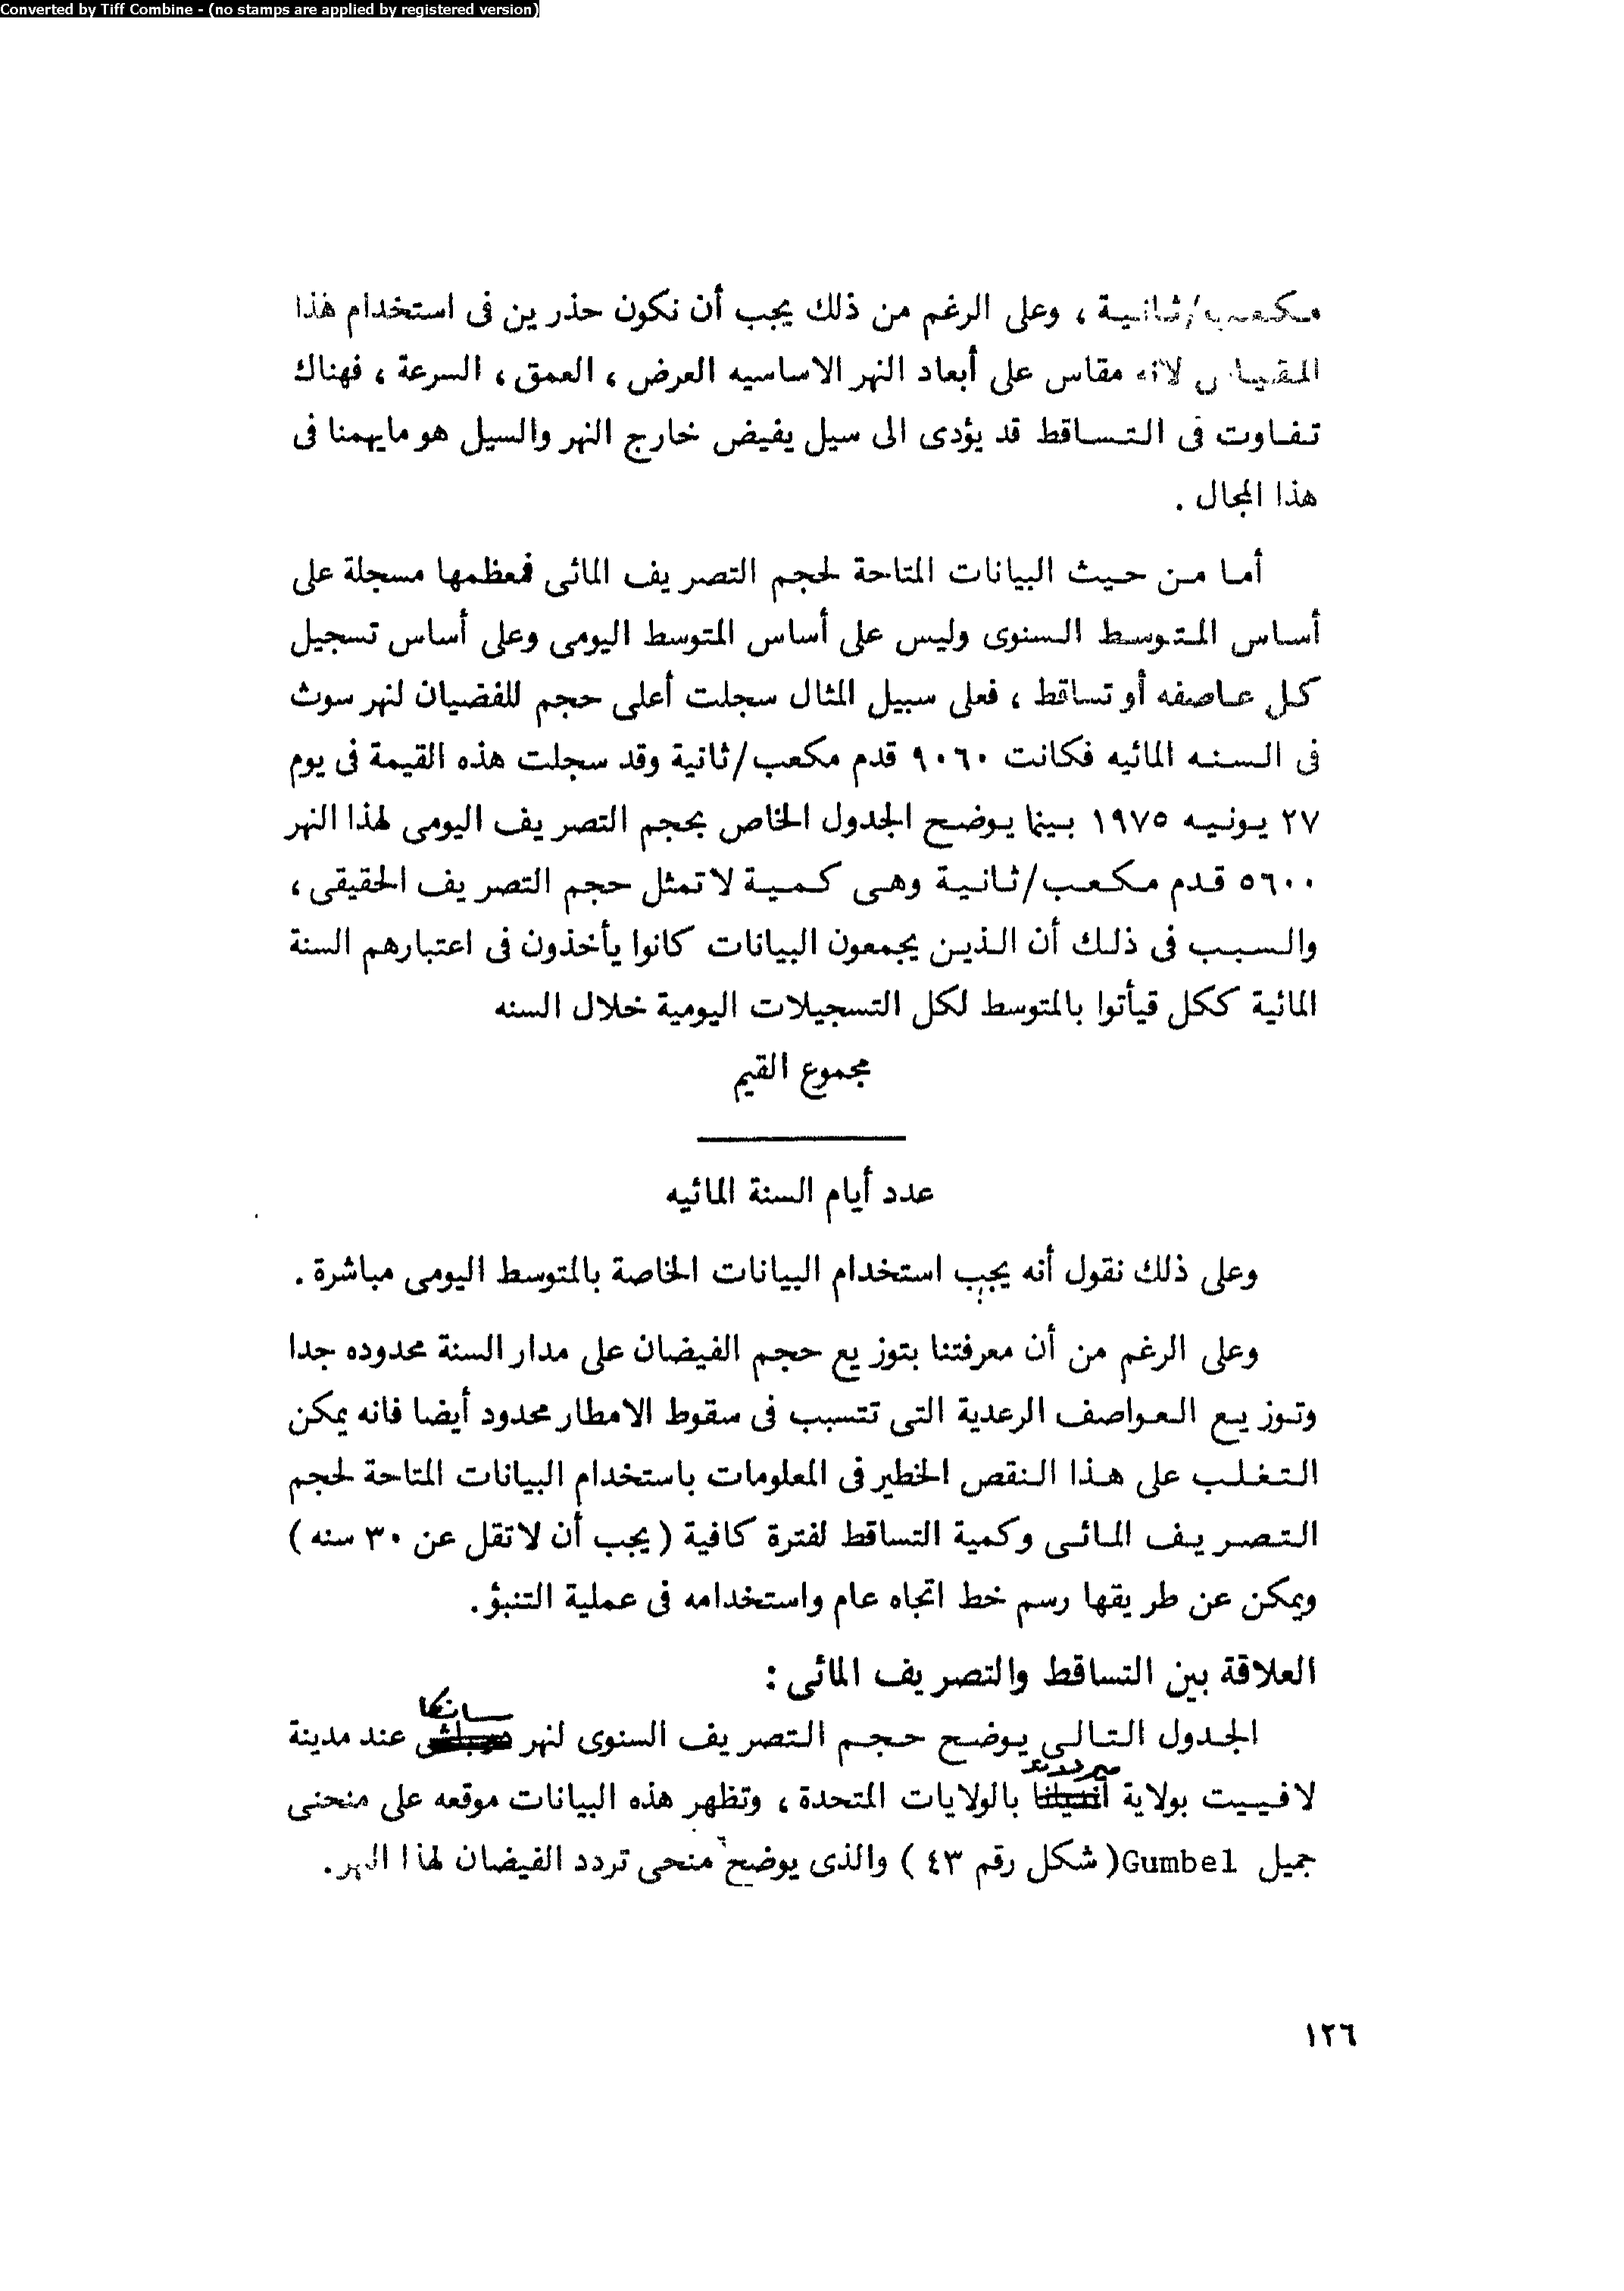 Converted by Tiff Combine - (no stamps are applied by registered version)
مكعب/ثانية ، وعلى الرغم من ذلك يجب أن نكون حذرين فى استخدام هذا
المقياس لانه مقاس على أبعاد النهر الاساسيه العرض ، العمق ، السرعة ، فهناك
تفاوت فى التساقط قد يؤدى الى سيل يفيض خارج النهر والسيل هو مايهمنا فى
هذا المجال .
أما من حيث البيانات المتاحة لحجم التصريف المائى فمعظمها مسجلة على
أساس المتوسط السنوى وليس على أساس المتوسط اليومى وعلى أساس تسجيل
كل عاصفه أو تساقط ، فعلى سبيل المثال سجلت أعلى حجم للفضيان لنهر سوث
فى السنه المائيه فكانت ٩٠٦٠ قدم مكعب/ثانية وقد سجلت هذه القيمة فى يوم
٢٧ يونيه ١٩٧٥ بينما يوضح الجدول الخاص بحجم التصريف اليومى لهذا النهر
٥٦٠٠ قدم مكعب/ثانية وهى كمية لاتمثل حجم التصريف الحقيقى ،
والسبب فى ذلك أن الذين يجمعون البيانات كانوا يأخذون فى اعتبارهم السنة
المائية ككل قيأتوا بالمتوسط لكل التسجيلات اليومية خلال السنه
مجموع القيم
عدد أيام السنة المائيه
وعلى ذلك نقول أنه يجب استخدام البيانات الخاصة بالمتوسط اليومى مباشرة .
وعلى الرغم من أن معرفتنا بتوزيع حجم الفيضان على مدار السنة محدوده جدا
وتوزيع العواصف الرعدية التى تتسبب فى سقوط الامطار محدود أيضا فانه يمكن
التغلب على هذا النقص الخطير فى المعلومات باستخدام البيانات المتاحة لحجم
التصريف المائى وكمية التساقط لفترة كافية ( يجب أن لاتقل عن ٣٠ سنه )
ويمكن عن طريقها رسم خط اتجاه عام واستخدامه فى عملية التنبؤ .
العلاقة بين التساقط والتصريف المائى :
الجدول التالى يوضح حجم التصريف السنوى لنهر عند مدينة
لافييت بولاية بالولايات المتحدة ، وتظهر هذه البيانات موقعه على منحنى
جميل Gumbel ( شكل رقم ٤٣ ) والذى يوضح منحى تردد الفيضان لهذا النهر .
١٢٦